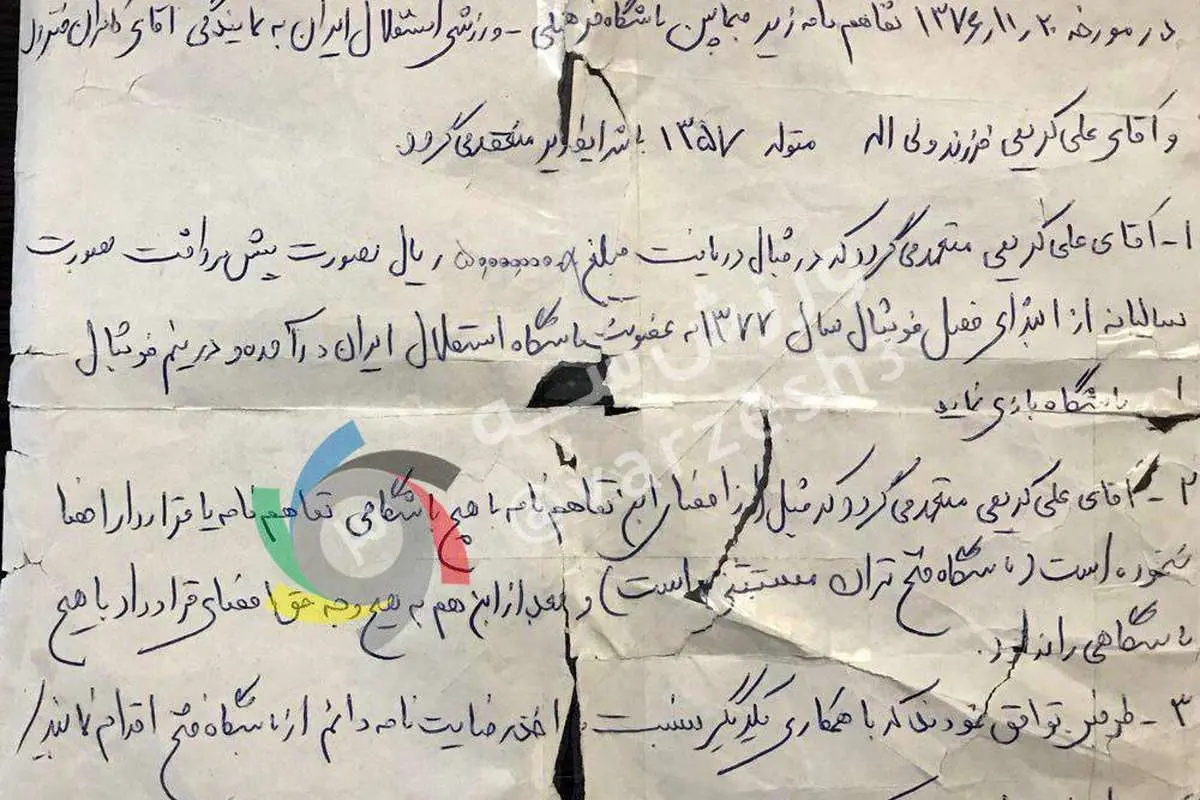 در مورخه ۲۰ر۱۱ر۱۳۷۶ تفاهم نامه زیر فیمابین باشگاه فرهنگی - ورزشی استقلال ایران به نمایندگی آقای کامران
و آقای علی کریمی فرزند ولی اله متولد ۱۳۵۷ با شرایط زیر منعقد می گردد.
۱- آقای علی کریمی متعهد می گردد که در قبال دریافت مبلغ ریال بصورت پیش پرداخت بصورت
سالیانه از ابتدای فصل فوتبال سال ۱۳۷۷ به عضویت باشگاه استقلال ایران درآمده و در تیم فوتبال
باشگاه بازی نماید
۲- آقای علی کریمی متعهد می گردد که قبل از امضای این تفاهم نامه با هیچ باشگاهی تفاهم نامه یا قرارداد امضا
ننموده است (باشگاه فتح تهران مستثنی است) و بعد از این هم به هیچ وجه حق امضای قرارداد با هیچ
باشگاهی را ندارد.
۳- طرفین توافق نمودند که با همکاری یکدیگر نسبت به اخذ رضایت نامه دائم از باشگاه فتح اقدام نمایند/
ورزش سه
@varzesh3